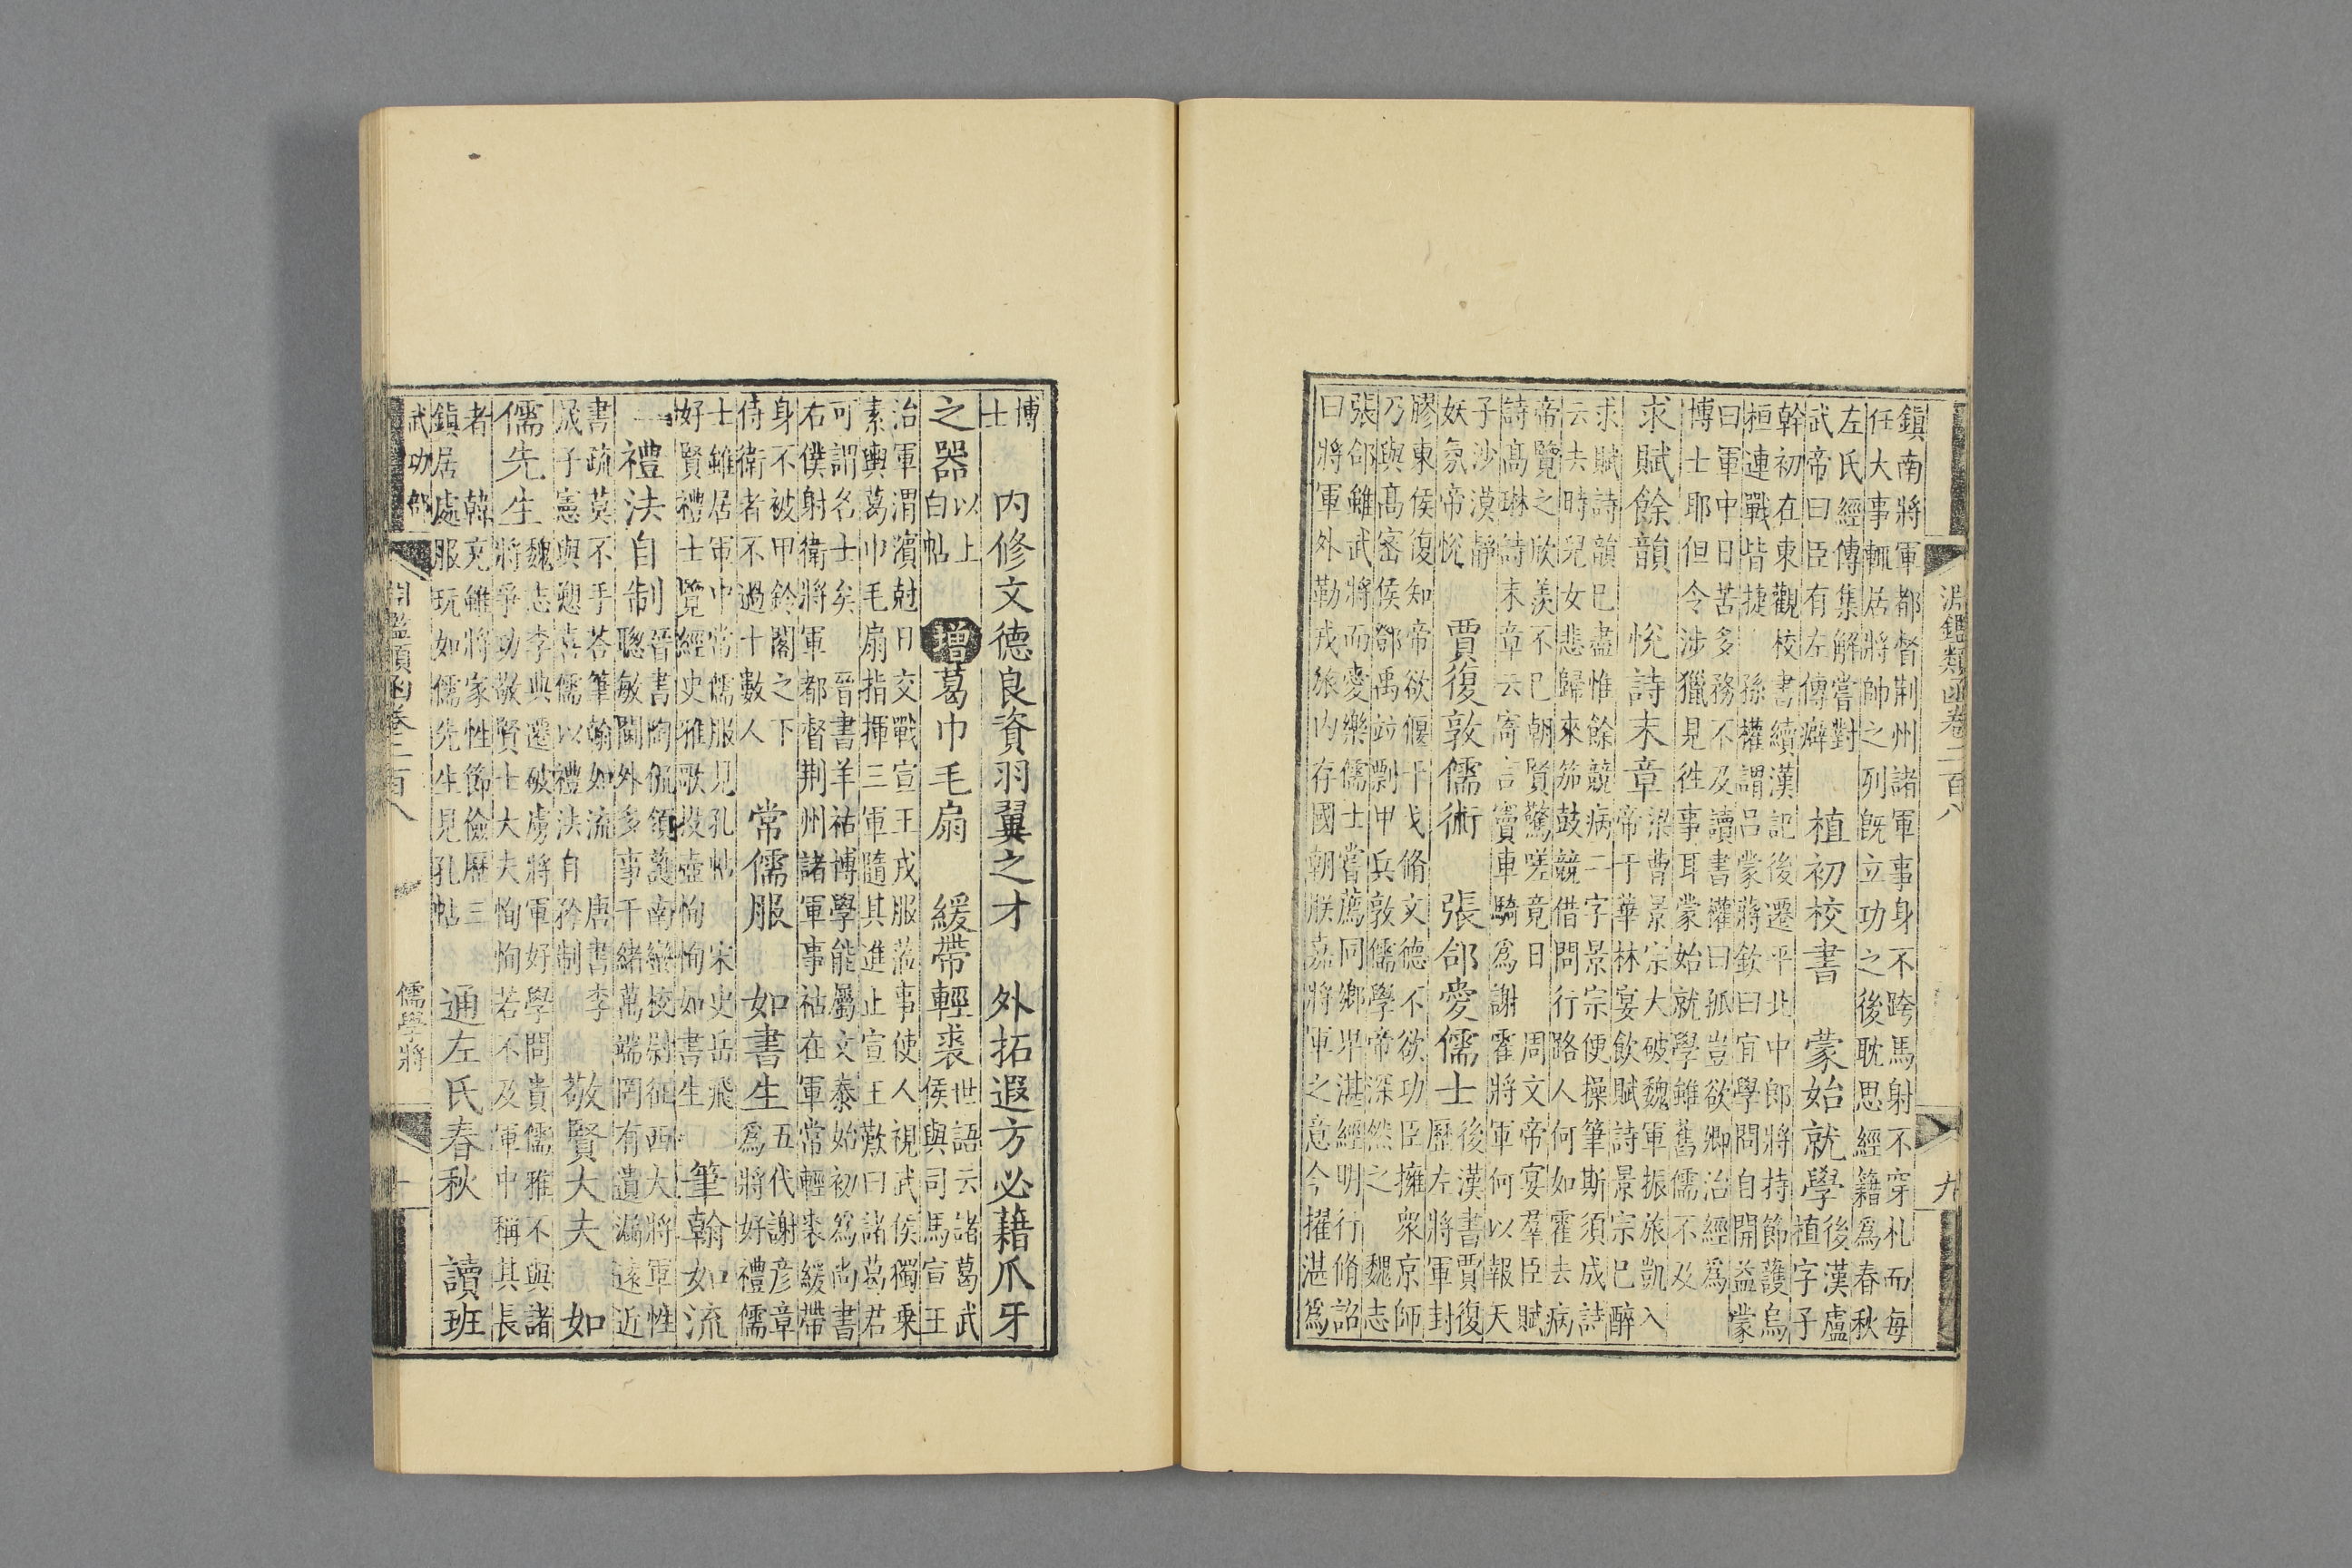 淵鑑類函卷二百八 九
鎮南將軍都督荆州諸軍事身不跨馬射不穿札而每
任大事輒居將帥之列旣立功之後耽思經籍爲春秋
左氏經傳集解嘗對
武帝曰臣有左傳癖
植初校書 蒙始就學
後漢盧
植字子
幹初在東觀校書續漢記後遷平北中郎將持節護烏
桓連戰皆捷 孫權謂呂蒙蔣欽曰宜學問自開益蒙
曰軍中日苦多務不及讀書權曰孤豈欲卿治經爲
博士耶但令涉獵見徃事耳蒙始就學雖舊儒不及
求賦餘韻 悅詩末章
梁曹景宗大破魏軍振旅凱入
帝于華林宴飲賦詩景宗已醉
求賦詩韻已盡惟餘競病二字景宗便操筆斯須成詩
云去時兒女悲歸來笳鼓競借問行路人何如霍去病
帝覽之欣羡不已朝賢驚嗟竟日 周文帝宴羣臣賦
詩高琳詩末章云寄言竇車騎爲謝霍將軍何以報天
子沙漠静
妖氛帝悅
賈復敦儒術 張郃愛儒士
後漢書賈復
歷左將軍封
膠東侯復知帝欲偃干戈脩文德不欲功臣擁衆京師
乃與高密侯鄧禹竝剽甲兵敦儒學帝深然之 魏志
張郃雖武將而愛樂儒士嘗薦同鄉卑湛經明行脩詔
曰將軍外勒戎旅内存國朝朕嘉將軍之意今擢湛爲
博
士
内修文德良資羽翼之才 外拓遐方必藉爪牙
之器
以上
白帖
增葛巾毛扇 緩帶輕裘
世語云諸葛武
侯與司馬宣王
治軍渭濵尅日交戰宣王戎服蒞事使人視武侯獨乗
素輿葛巾毛扇指揮三軍隨其進止宣王歎曰諸葛君
可謂名士矣 晉書羊祜博學能屬文泰始初爲尚書
右僕射衛將軍都督荆州諸軍事祜在軍常輕裘緩帶
身不被甲鈴閣之下
侍衛者不過十數人
常儒服 如書生
五代謝彦章
爲將好禮儒
士雖居軍中常儒服見孔帖 宋史岳飛
好賢禮士覽經史雅歌投壺恂恂如書生
筆翰如流
一禮法自制
晉書陶侃領護南蠻校尉征西大將軍性
聰敏閫外多事千緒萬端罔有遺漏遠近
書疏莫不手荅筆翰如流 唐書李
晟子憲與愬喜儒以禮法自矜制
敬賢大夫 如
儒先生
魏志李典遷破虜將軍好學問貴儒雅不與諸
將爭功敬賢士大夫恂恂若不及軍中稱其長
者 韓充雖將家性節儉歷三
鎮居處服玩如儒先生見孔帖
通左氏春秋 讀班
武功部 淵鑑類函卷二百八 儒學將 十